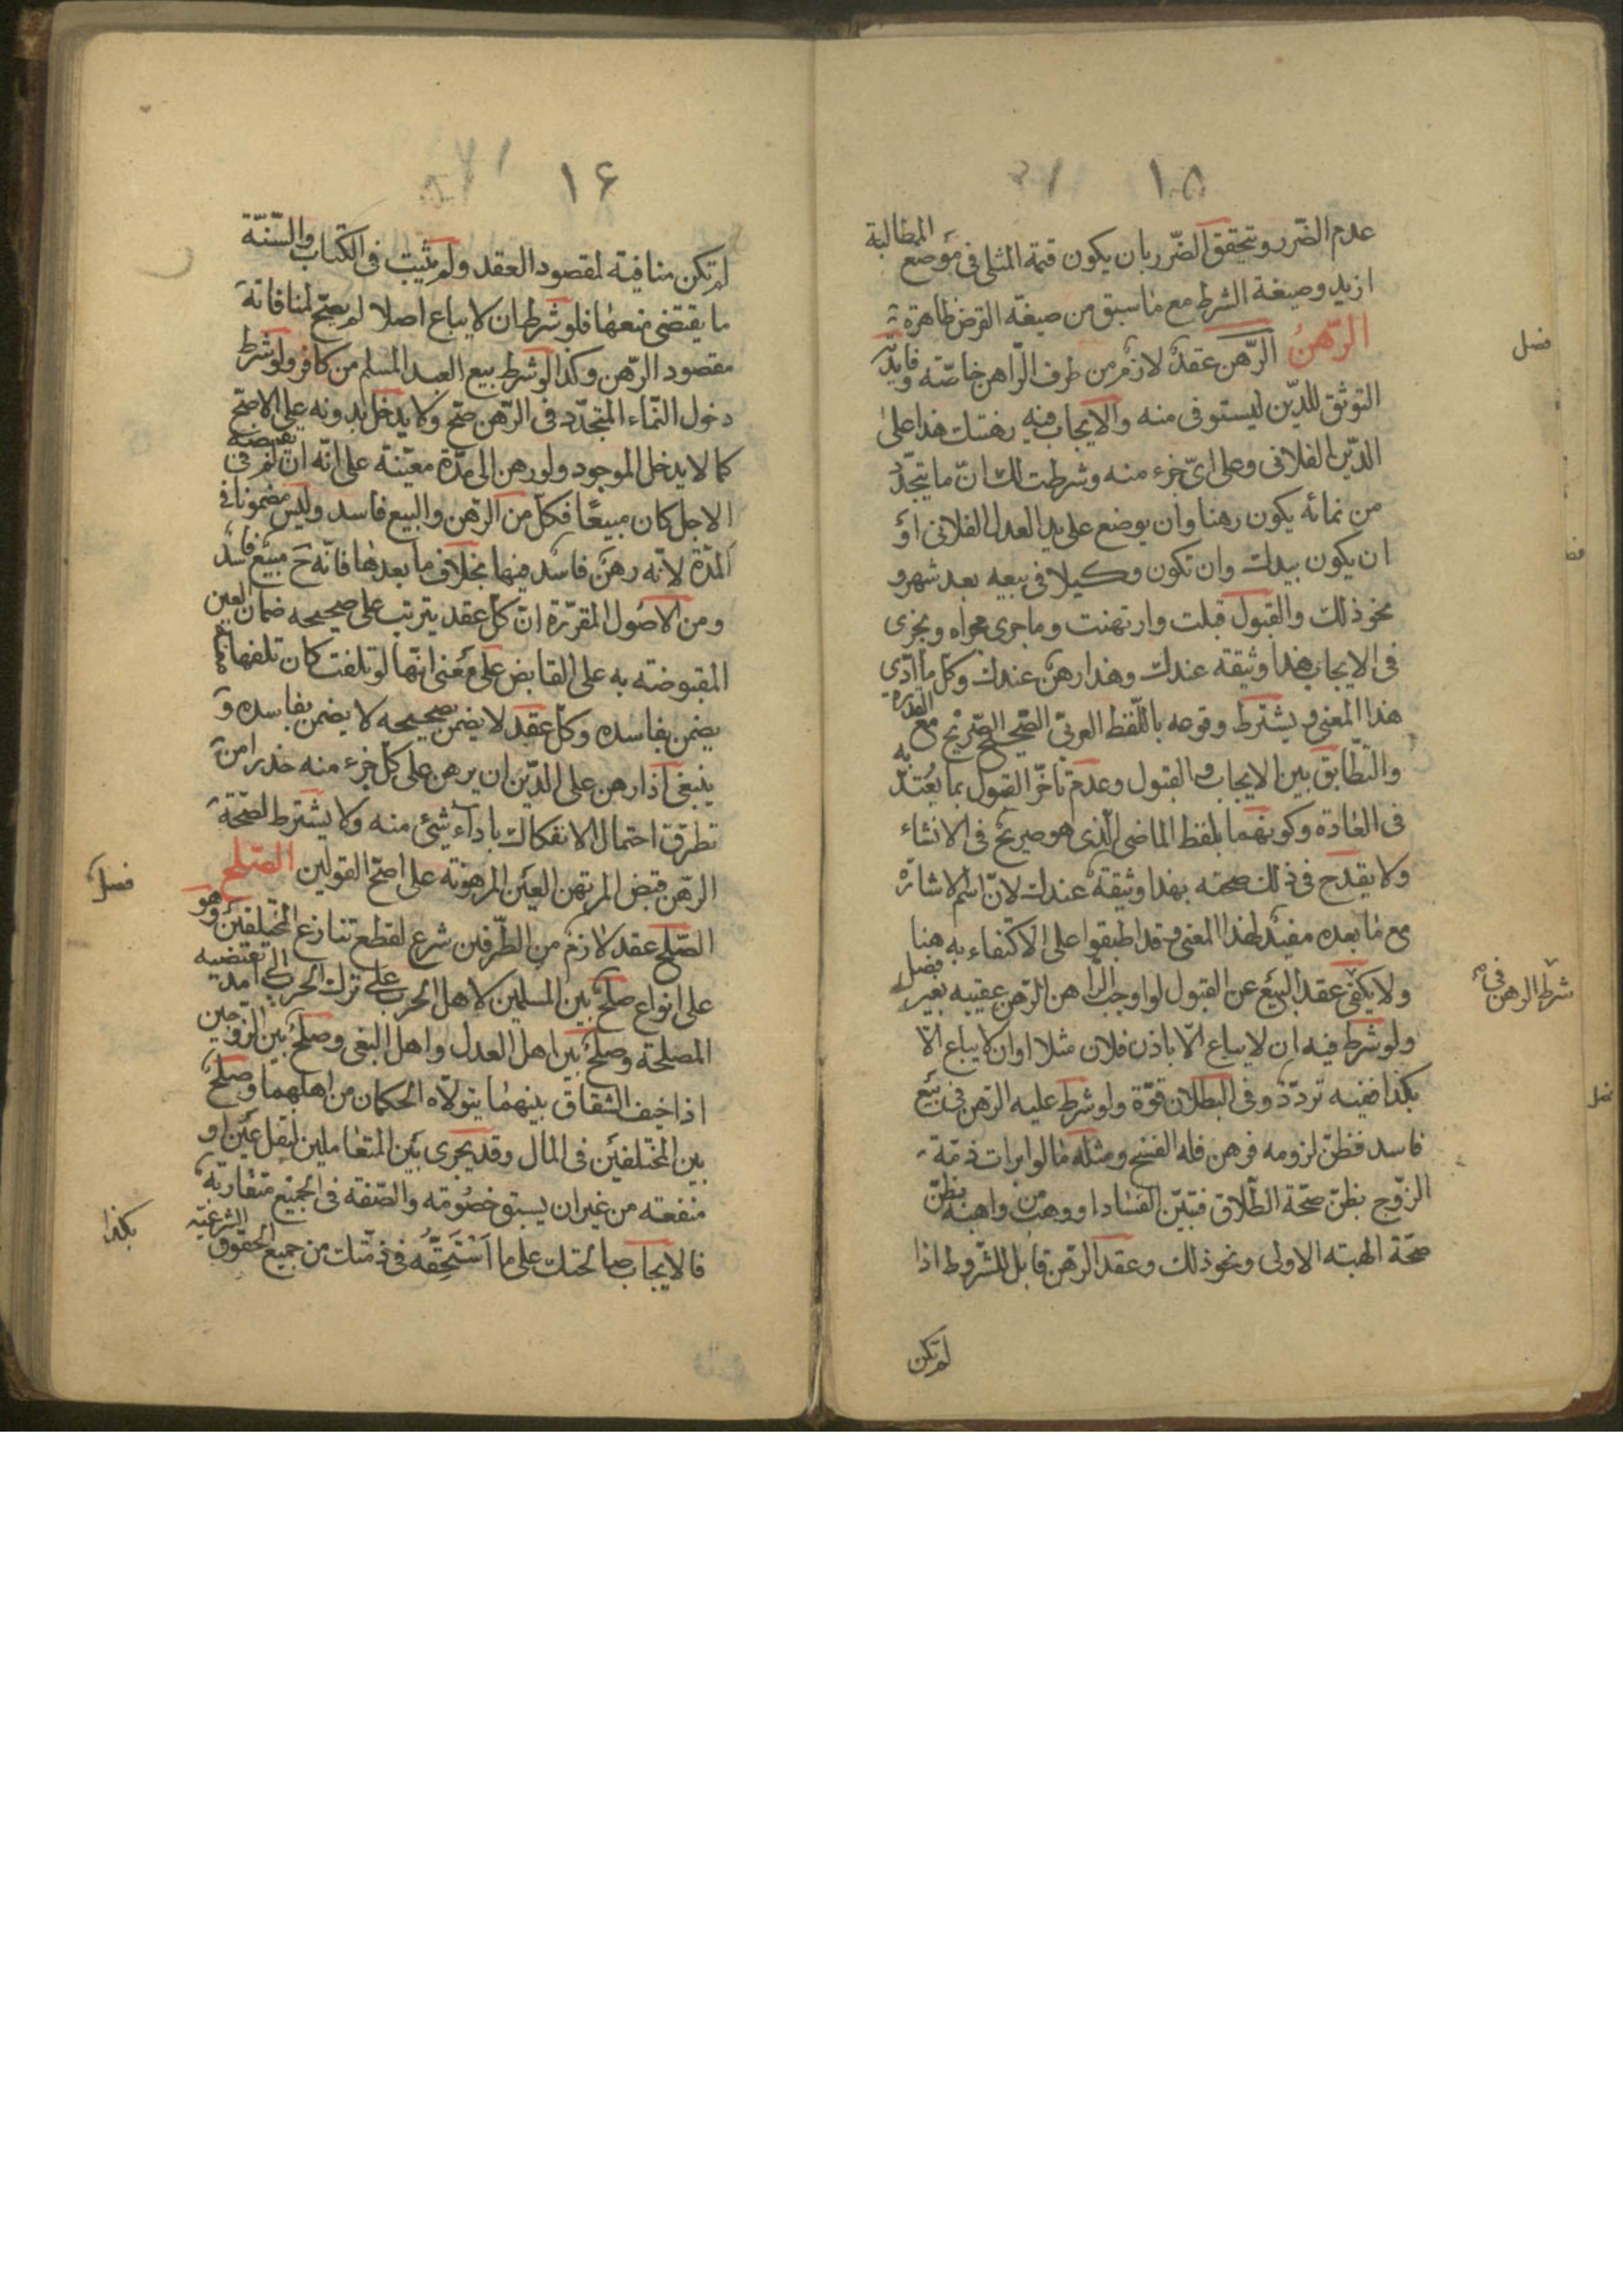 ١٥
عدم الضّرر ويتحقق الضّرر بان يكون قيمة المثلى فى موضع المطالبة
ازيد وصيغة الشرط مع ما سبق من صيغة القرض ظاهرة
فصل
الرّهنُ الرّهن عقدٌ لازم من طرف الرّاهن خاصّة وفايدته
التوثق للدّين ليستوفى منه والايجاب فيه رهنتك هذا على
الدّين الفلانى وعلى اىّ جزء منه وشرطت لك انّ ما يتجدّد
من نمائه يكون رهنا وان يوضع على يد العدل الفلانى اوْ
ان يكون بيدك وان تكون وكيلا فى بيعه بعد شهر و
نحو ذلك والقبول قبلت وارتهنت وما جرى مجراه ويجزى
فى الايجاب هذا وثيقة عندك وهذا رهن عندك وكلّ ما ادّى
هذا المعنى ويشترط وقوعه باللّفظ العربىّ الصّحيح الصّريح مع القدرة
والتّطابق بين الايجاب والقبول وعدم تأخّر القبول بما يُعتدّ به
فى العادة وكونهما بلفظ الماضى الّذى هو صريح فى الانشاء
ولا يقدح فى ذلك صحته بهذا وثيقة عندك لانّ اسم الاشارة
مع ما بعده مفيد لهذا المعنى وقد اطبقوا على الاكتفاء به هنا
ولا يكفى عقد البيع عن القبول لو اوجب الرّاهن الرّهن عقيبه بغير فصل
شرط الرهن فى
ولو شرط فيه ان لا يباع الّا باذن فلان مثلا او ان لا يباع الّا
بكذا ففيه تردّد وفى البطلان قوّة ولو شرط عليه الرّهن فى بيع
فاسد فظنّ لزومه فرهن فله الفسخ ومثله ما لو ابرات ذمّة
الزّوج بظنّ صحّة الطّلاق فتبيّن الفساد او وهب من واهبه بظنّ
صحّة الهبة الاولى ونحو ذلك وعقد الرّهن قابل للشّروط اذا
لم تكن
١۶
لم تكن منافية لمقصود العقد ولم يثبت فى الكتاب والسّنّة
ما يقتضى منعها فلو شرط ان لا يباع اصلا لم يصحّ لمنافاته
مقصود الرّهن وكذا لو شرط بيع العبد المسلم من كافر ولو شرط
دخول النّماء المتجدّد فى الرّهن صحّ ولا يدخل بدونه على الاصحّ
كما لا يدخل الموجود ولو رهن الى مدّة معيّنة على انّه ان لم يقبضه فى
الاجل كان مبيعًا فكلّ من الرّهن والبيع فاسد وليس مضمونا فى
المدّة لانّه رهنٌ فاسد فيها بخلاف ما بعدها فانّه ح مبيع فاسد
ومن الاصول المقرّرة انّ كلّ عقد يترتب على صحيحه ضمان العين
المقبوضة به على القابض على معنى انّها لو تلفت كان تلفها
يضمن بفاسده وكلّ عقد لا يضمن بصحيحه لا يضمن بفاسده و
ينبغى اذا رهن على الدّين ان يرهن على كلّ جزء منه حذرا من
تطرّق احتمال الانفكاك باداء شىء منه ولا يشترط لصحّة
الرّهن قبض المرتهن العين المرهونة على اصحّ القولين الصّلح
فصل
الصّلح عقد لازم من الطّرفين شرع لقطع تنازع المختلفين وهو
على انواع صلح بين المسلمين لاهل الحرب على ترك الحرب الى امد تقتضيه
المصلحة وصلح بين اهل العدل واهل البغى وصلح بين الزوجين
اذا خيف الشقاق بينهما يتولّاه الحكمان من اهلهما وصلح
بين المختلفين فى المال وقد يجرى بين المتعاملين لنقل عين او
منفعة من غير ان يسبق خصومة والصّفة فى الجميع متقاربة
فالايجاب صالحتك على ما اَسْتَحِقُّه فى ذمّتك من جميع الحقوق الشرعيّه
بكذا